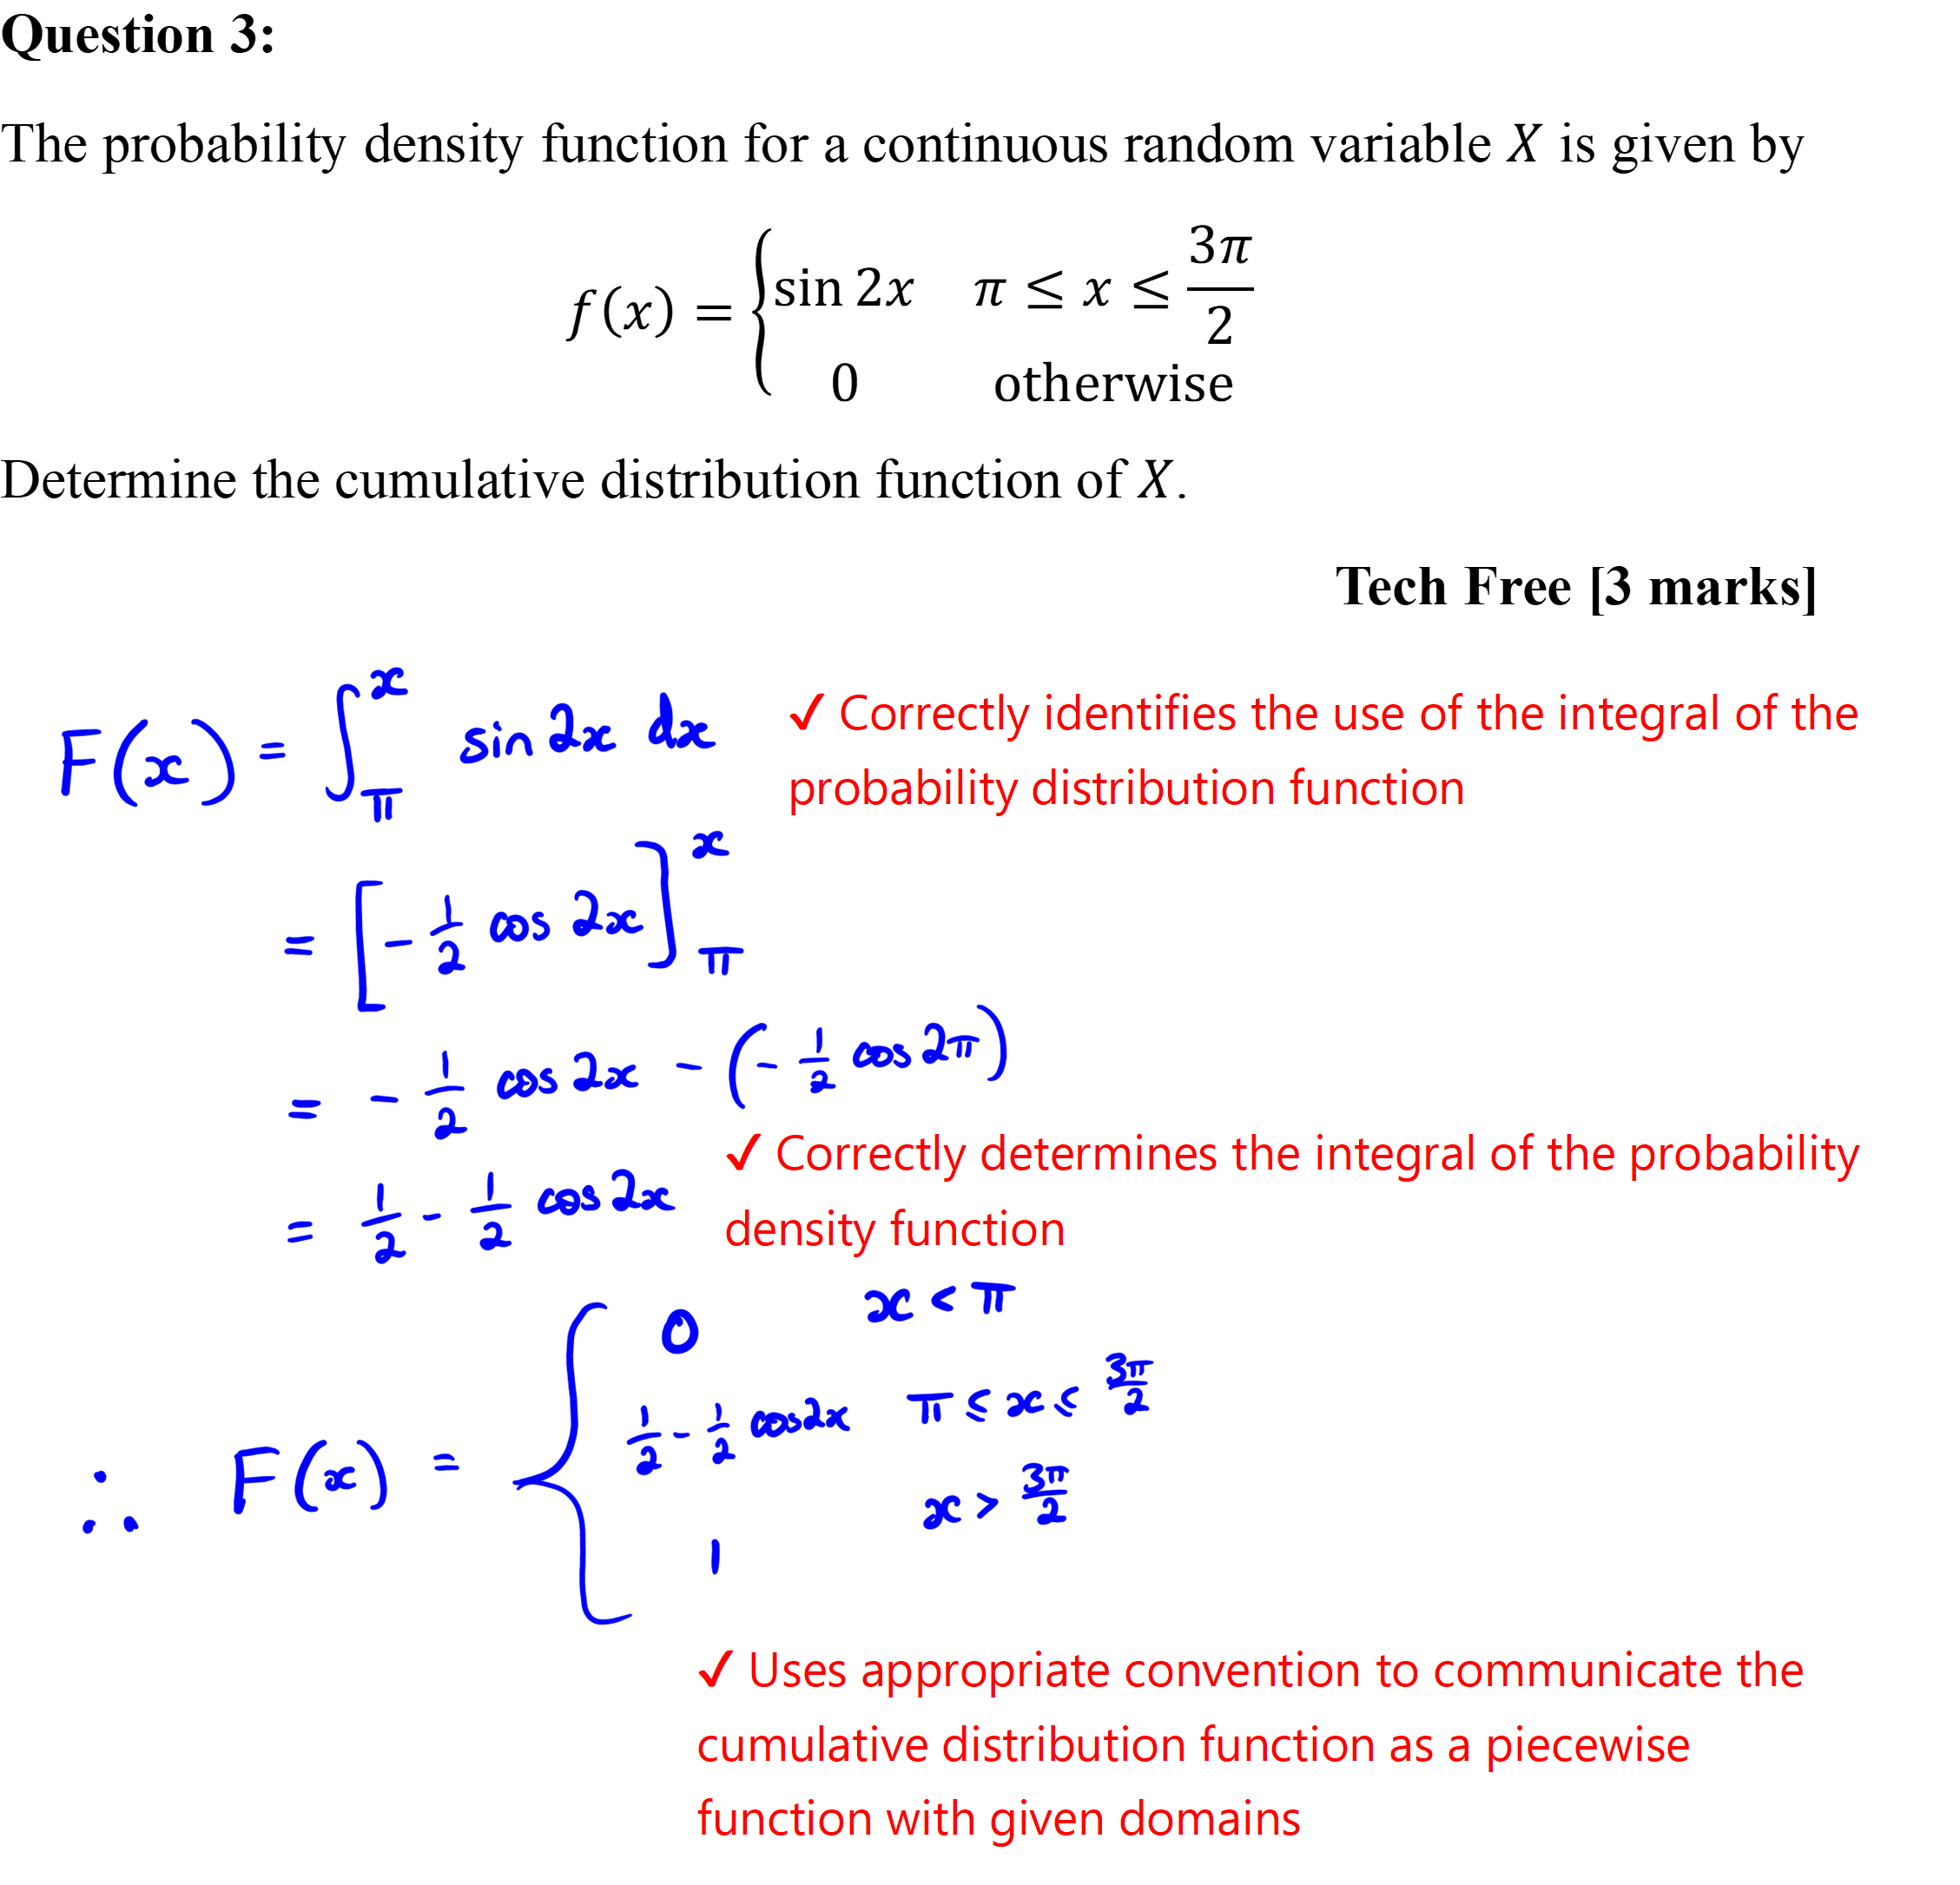 Question 3:
The probability density function for a continuous random variable X is given by
f(x) = { sin 2x   π ≤ x ≤ 3π/2
0   otherwise
Determine the cumulative distribution function of X.
Tech Free [3 marks]
F(x) = ∫_π^x sin 2x dx
✓ Correctly identifies the use of the integral of the
probability distribution function
= [-1/2 cos 2x]_π^x
= -1/2 cos 2x - (-1/2 cos 2π)
= 1/2 - 1/2 cos 2x
✓ Correctly determines the integral of the probability
density function
∴ F(x) = { 0   x < π
1/2 - 1/2 cos 2x   π ≤ x ≤ 3π/2
1   x > 3π/2
✓ Uses appropriate convention to communicate the
cumulative distribution function as a piecewise
function with given domains